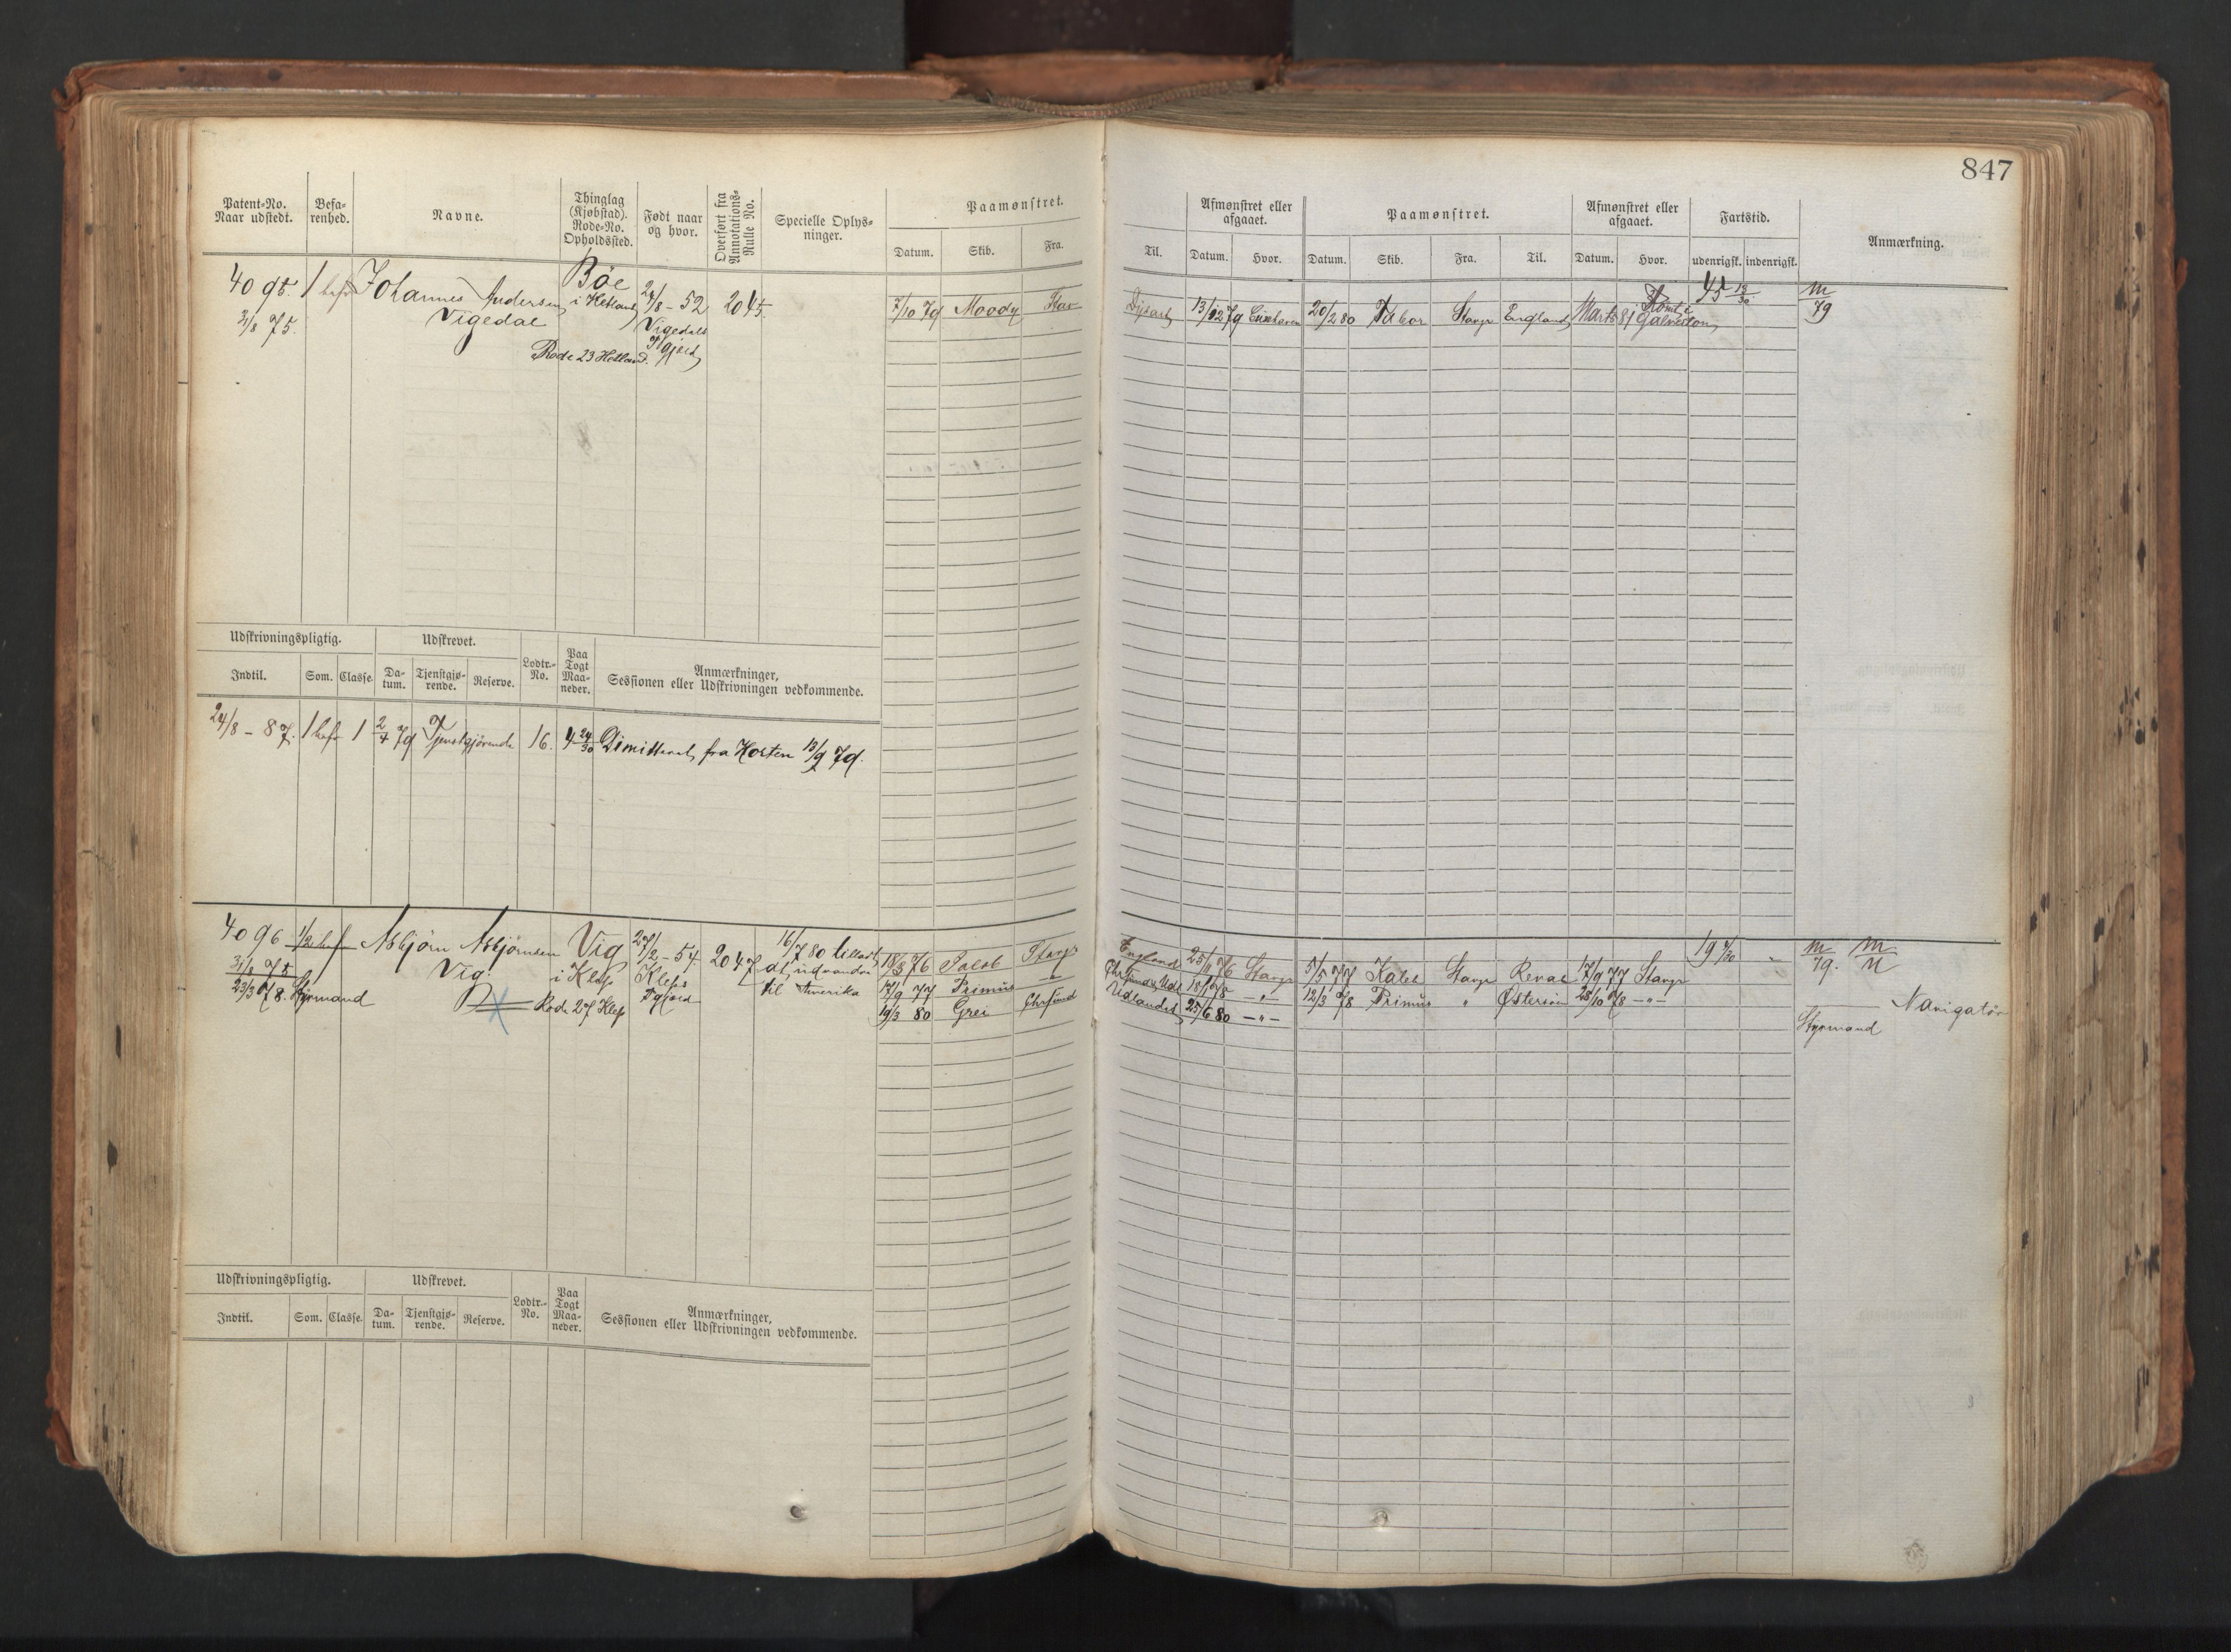 847
Patent-No. Naar udstedt.
Befarenhed.
Navne.
Thinglag (Kjøbstad). Rode-No. Opholdssted.
Født naar og hvor.
Overført fra Annotations-Rulle No.
Specielle Oplysninger.
Paamønstret.
Datum. Skib. Fra.
Til.
Afmønstret eller afgaaet.
Datum. Hvor.
Paamønstret.
Datum. Skib. Fra. Til.
Afmønstret eller afgaaet.
Datum. Hvor.
Fartstid.
udenrigsk. indenrigsk.
Anmærkning.
4095. 1 bef Johannes Andersen Bøe 24/8 - 52 2045
31/8 75. Vigedal i Hetland Vigedals
Rode 23 Hetland. Pgjeld
7/10 79 Moody Stav Dysart 13/12 79 Cuxhaven 20/2 80 Tabor Stavgr England Marts 81 Rømt i Galveston 45 13/30 m/79
Udskrivningspligtig.
Udskrevet.
Lodtr.-No.
Paa Togt Maaneder.
Anmærkninger,
Sessionen eller Udskrivningen vedkommende.
Indtil. Som. Classe. Datum. Tjenstgjørende. Reserve.
24/8 - 87. 1 bef 1 2/4 79 Tjenstgjørende 16. 4 24/30 Dimitteret fra Horten 13/9 79.
4096 1/2 bef Asbjørn Asbjørnsen Vig 27/2 - 54. 2047 16/7 80 tilladt
31/8 75 Vig. i Klep Kleps at udvandre
23/3 78. Styrmand Rode 27 Klep Pgjeld til Amerika
18/8 76 Jacob Stavgr England 25/11 76 Stavgr 5/5 77 Kaleb Stavgr Reval 17/9 77 Stavgr 19 4/30 - m/79. m/n
17/9 77 Primus -"- 18/1 78 -"- 12/3 78 Primus " Østersøn 28/10 78 -"-
19/3 80 Grei Chrsund Udlandet 25/6 80 -"-
Styrmand Navigatør
Udskrivningspligtig.
Udskrevet.
Lodtr.-No.
Paa Togt Maaneder.
Anmærkninger,
Sessionen eller Udskrivningen vedkommende.
Indtil. Som. Classe. Datum. Tjenstgjørende. Reserve.